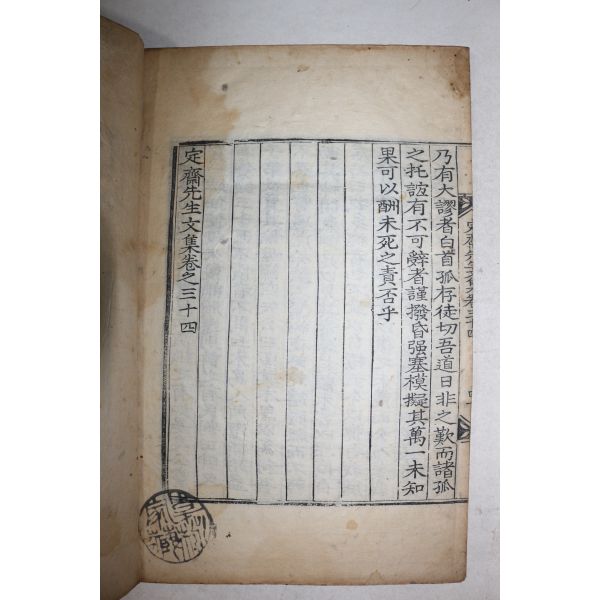 定齋先生文集卷之三十四
乃有大謬者白首孤存徒切吾道日非之歎而諸孤
之托誼有不可辭者謹撥昏强塞模擬其萬一未知
果可以酬未死之責否乎
定齋先生文集卷之三十四